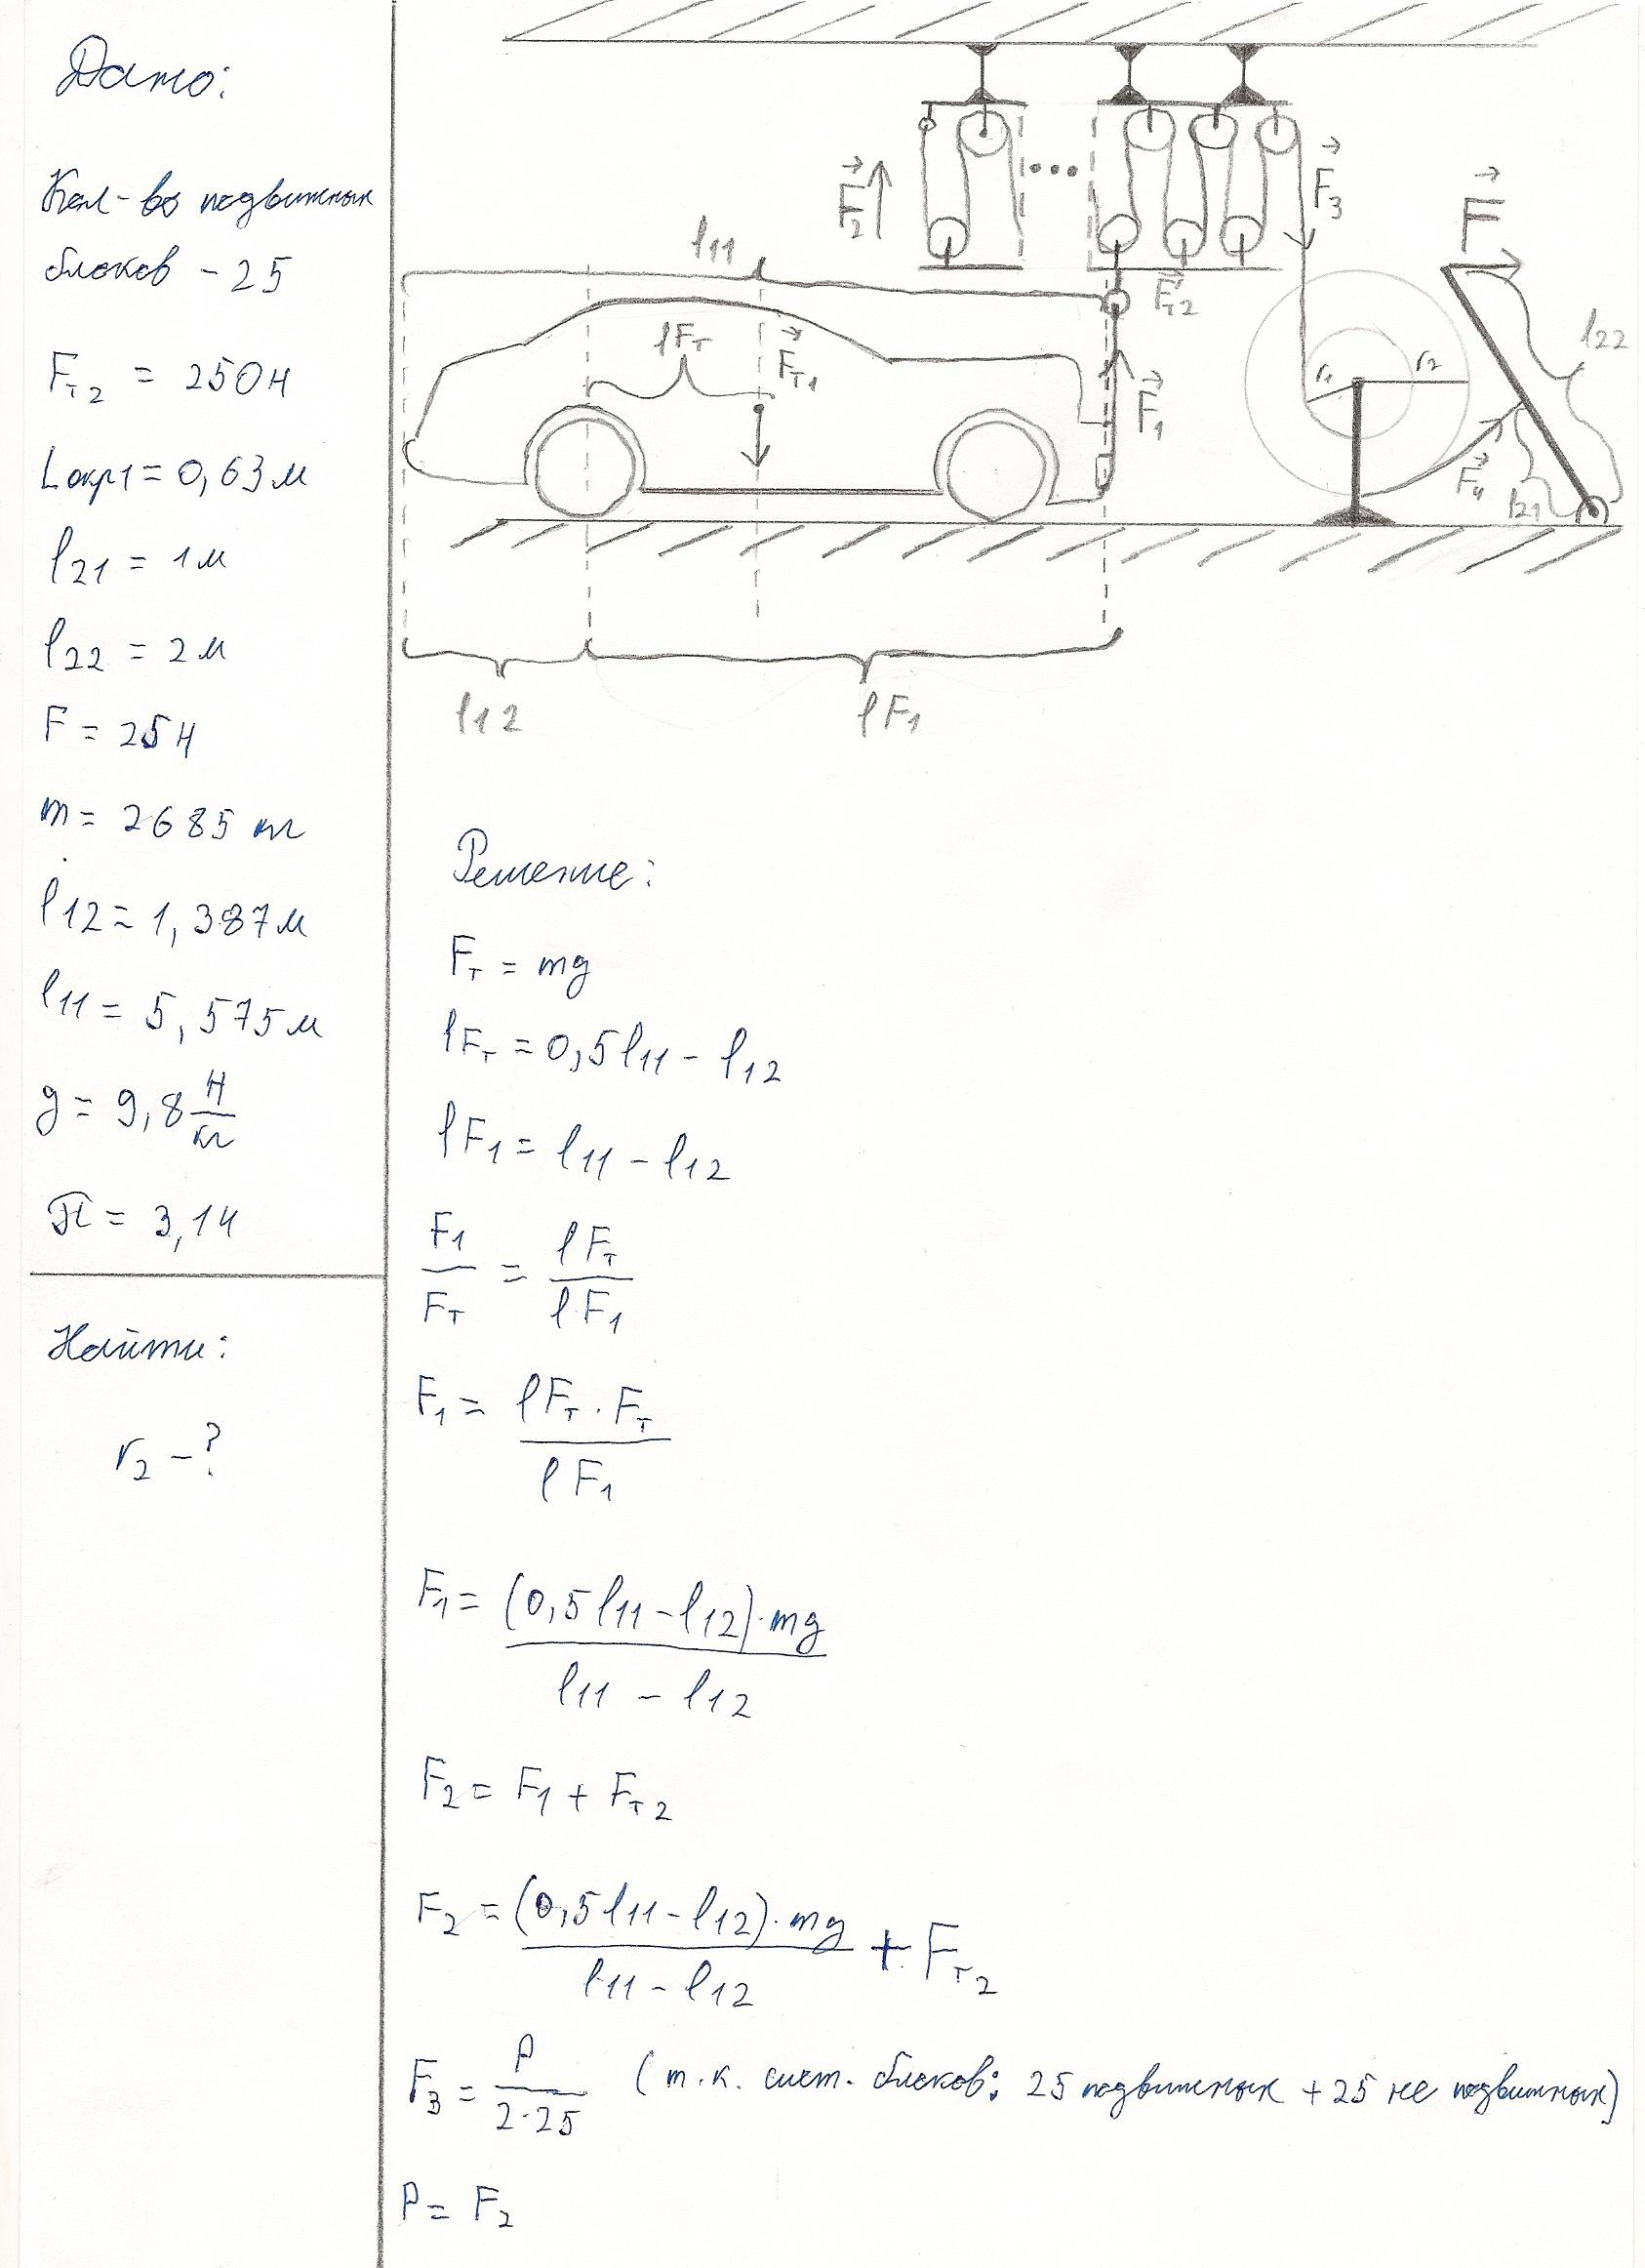 Дано:
Кол-во подвижных
блоков - 25
Fт2 = 250н
Lокр1 = 0,63м
l21 = 1м
l22 = 2м
F = 25н
m = 2685 кг
l12 = 1,387м
l11 = 5,575м
g = 9,8 н/кг
π = 3,14
Найти:
r2 - ?
F2
l11
lFт
Fт1
Fт2
F1
F3
F
r1
r2
l22
F4
l21
l12
lF1
Решение:
Fт = mg
lFт = 0,5l11 - l12
lF1 = l11 - l12
F1/Fт = lFт/lF1
F1 = lFт · Fт / lF1
F1 = (0,5l11 - l12) · mg / l11 - l12
F2 = F1 + Fт2
F2 = (0,5l11 - l12) · mg / l11 - l12 + Fт2
F3 = P / 2·25 (т.к. сист. блоков: 25 подвижных + 25 не подвижных)
P = F2